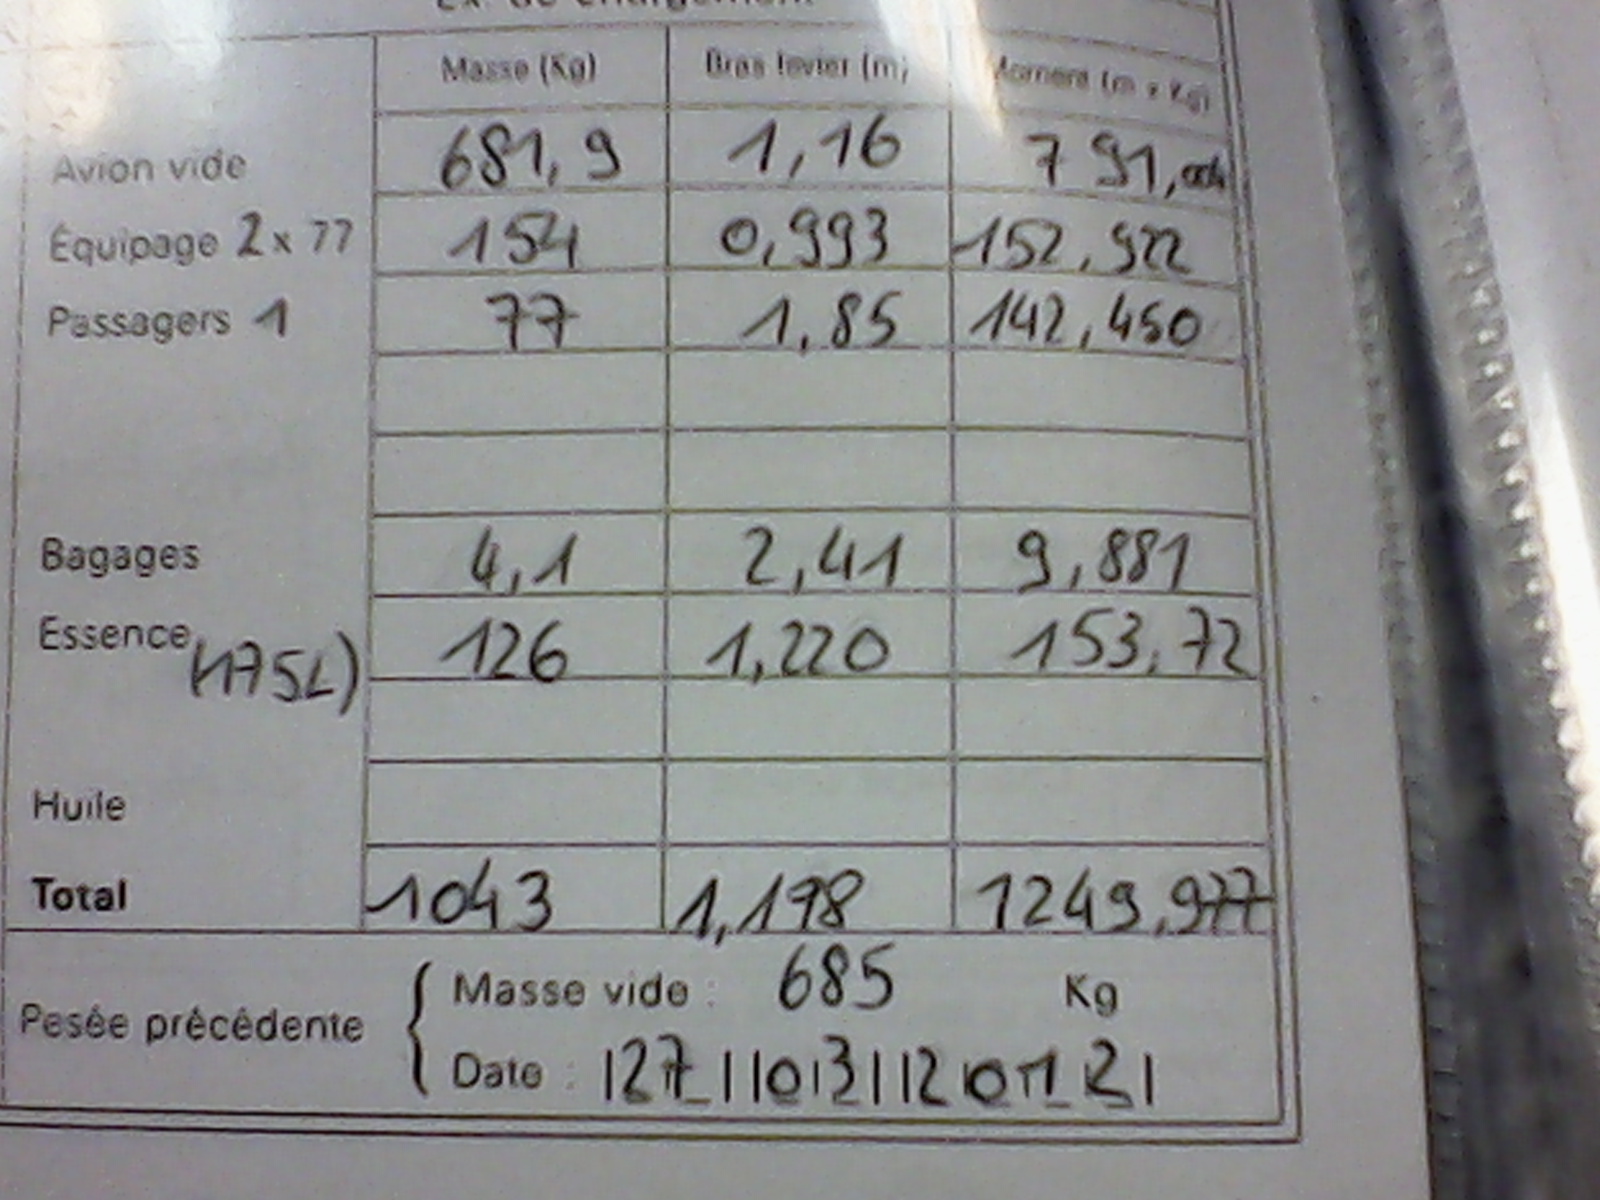 Ex. de chargement
Masse (Kg) Bras levier (m) Moment (m x Kg)
Avion vide 681,9 1,16 791,004
Équipage 2 x 77 154 0,993 152,922
Passagers 1 77 1,85 142,450
Bagages 4,1 2,41 9,881
Essence (175L) 126 1,220 153,72
Huile
Total 1043 1,198 1249,977
Masse vide : 685 Kg
Pesée précédente
Date : 27 03 2012